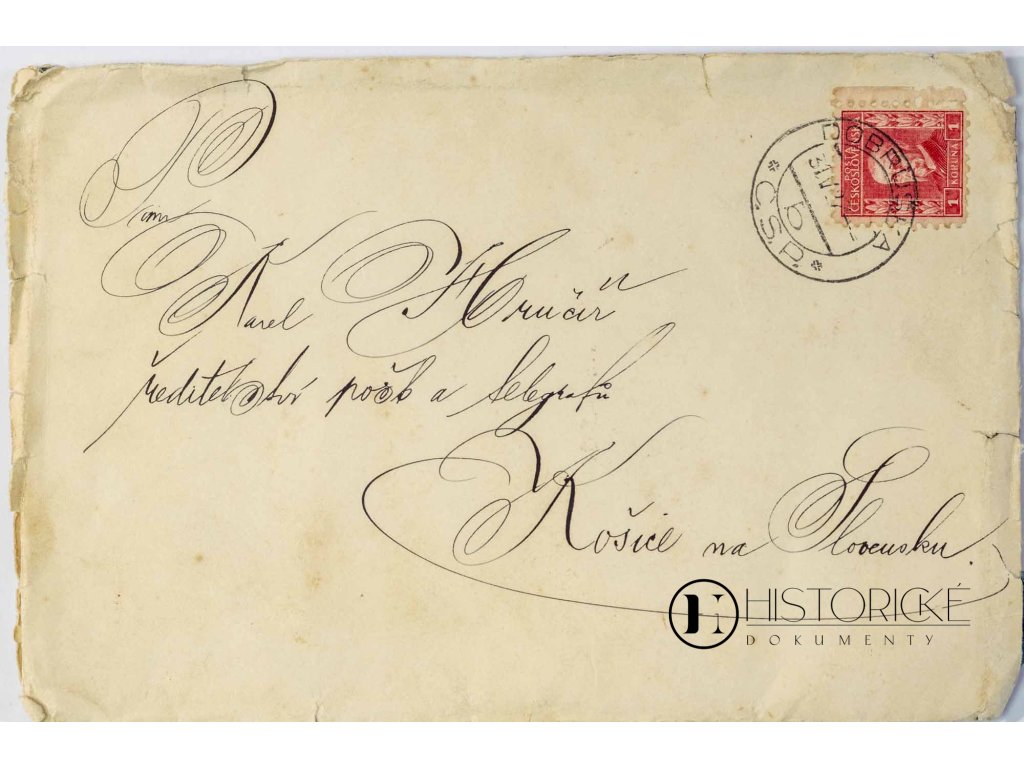 Pan
Karel Hručiř
ředitelství pošt a telegrafů
Košice na Slovensku.
POŠTA
ČESKOSLOVENSKÁ
1 KORUNA 1
DOBRUŠKA
b
Č.S.P.
HISTORICKÉ
DOKUMENTY